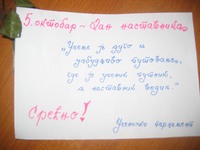 5. октобар - Дан наставника
„Учење је дуго и
узбудљиво путовање,
где је ученик путник,
а наставник водич."
Срећно!
Ученички парламент